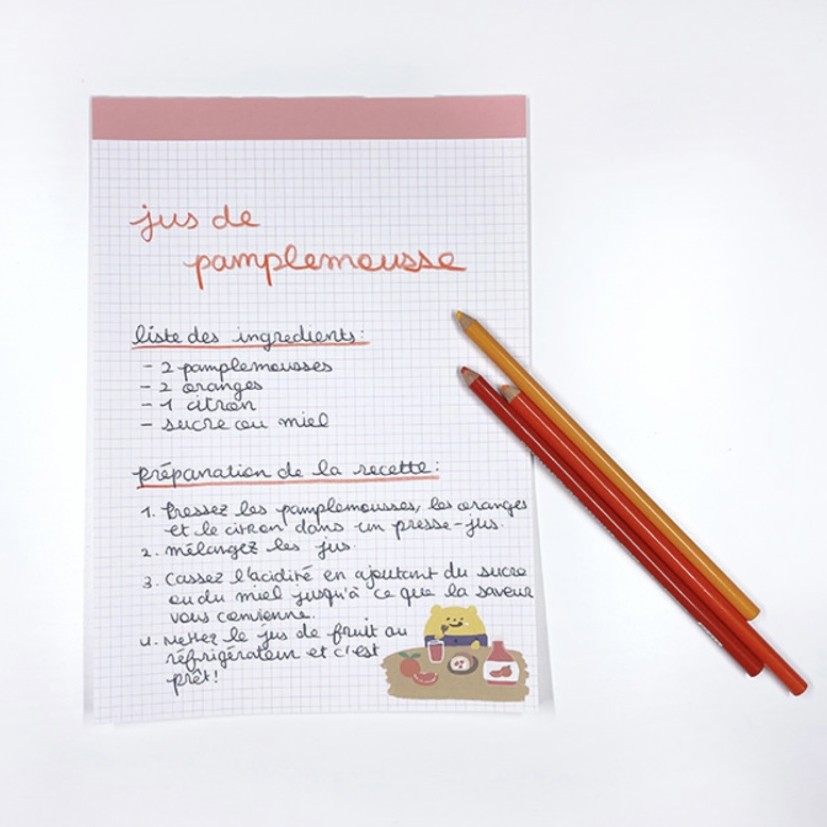 jus de
pamplemousse
liste des ingredients:
- 2 pamplemousses
- 2 oranges
- 1 citron
- sucre ou miel
préparation de la recette:
1. Pressez les pamplemousses, les oranges
et le citron dans un presse-jus.
2. mélangez les jus.
3. Cassez l'acidité en ajoutant du sucre
ou du miel jusqu'à ce que la saveur
vous convienne.
4. Mettez le jus de fruit au
réfrigérateur et c'est
prêt!